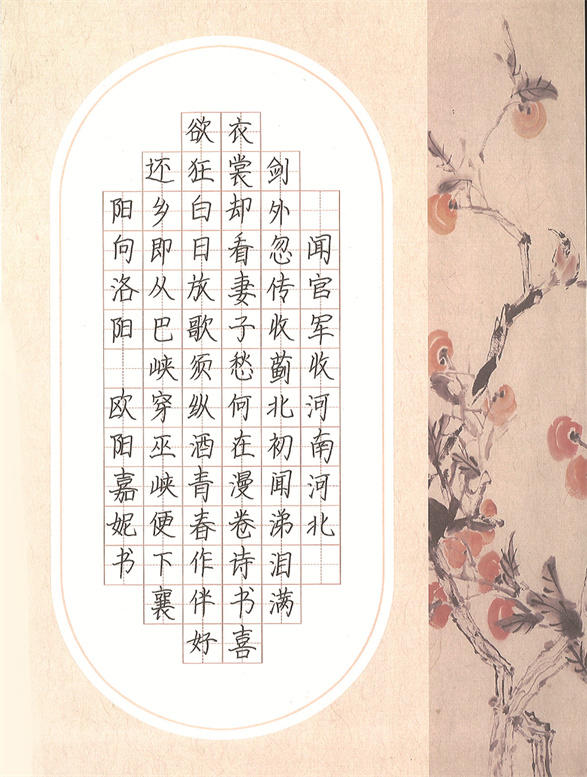 闻官军收河南河北
剑外忽传收蓟北初闻涕泪满
衣裳却看妻子愁何在漫卷诗书喜
欲狂白日放歌须纵酒青春作伴好
还乡即从巴峡穿巫峡便下襄
阳向洛阳 欧阳嘉妮书